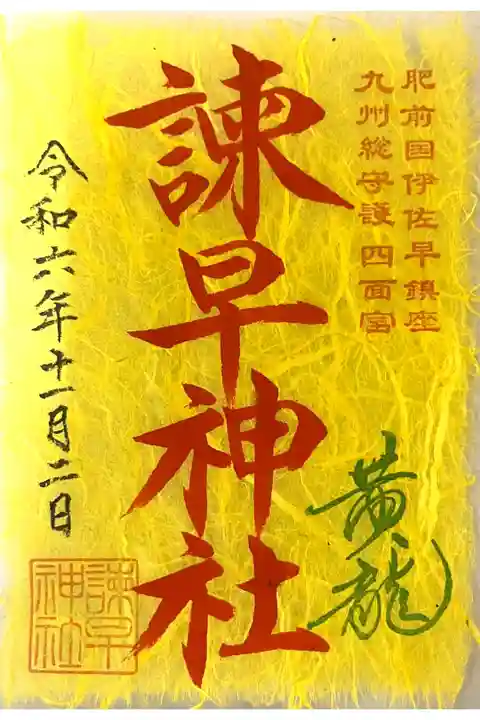 肥前国伊佐早鎮座
九州総守護 四面宮
諫早神社
黄龍
令和六年十一月二日
諫早
神社